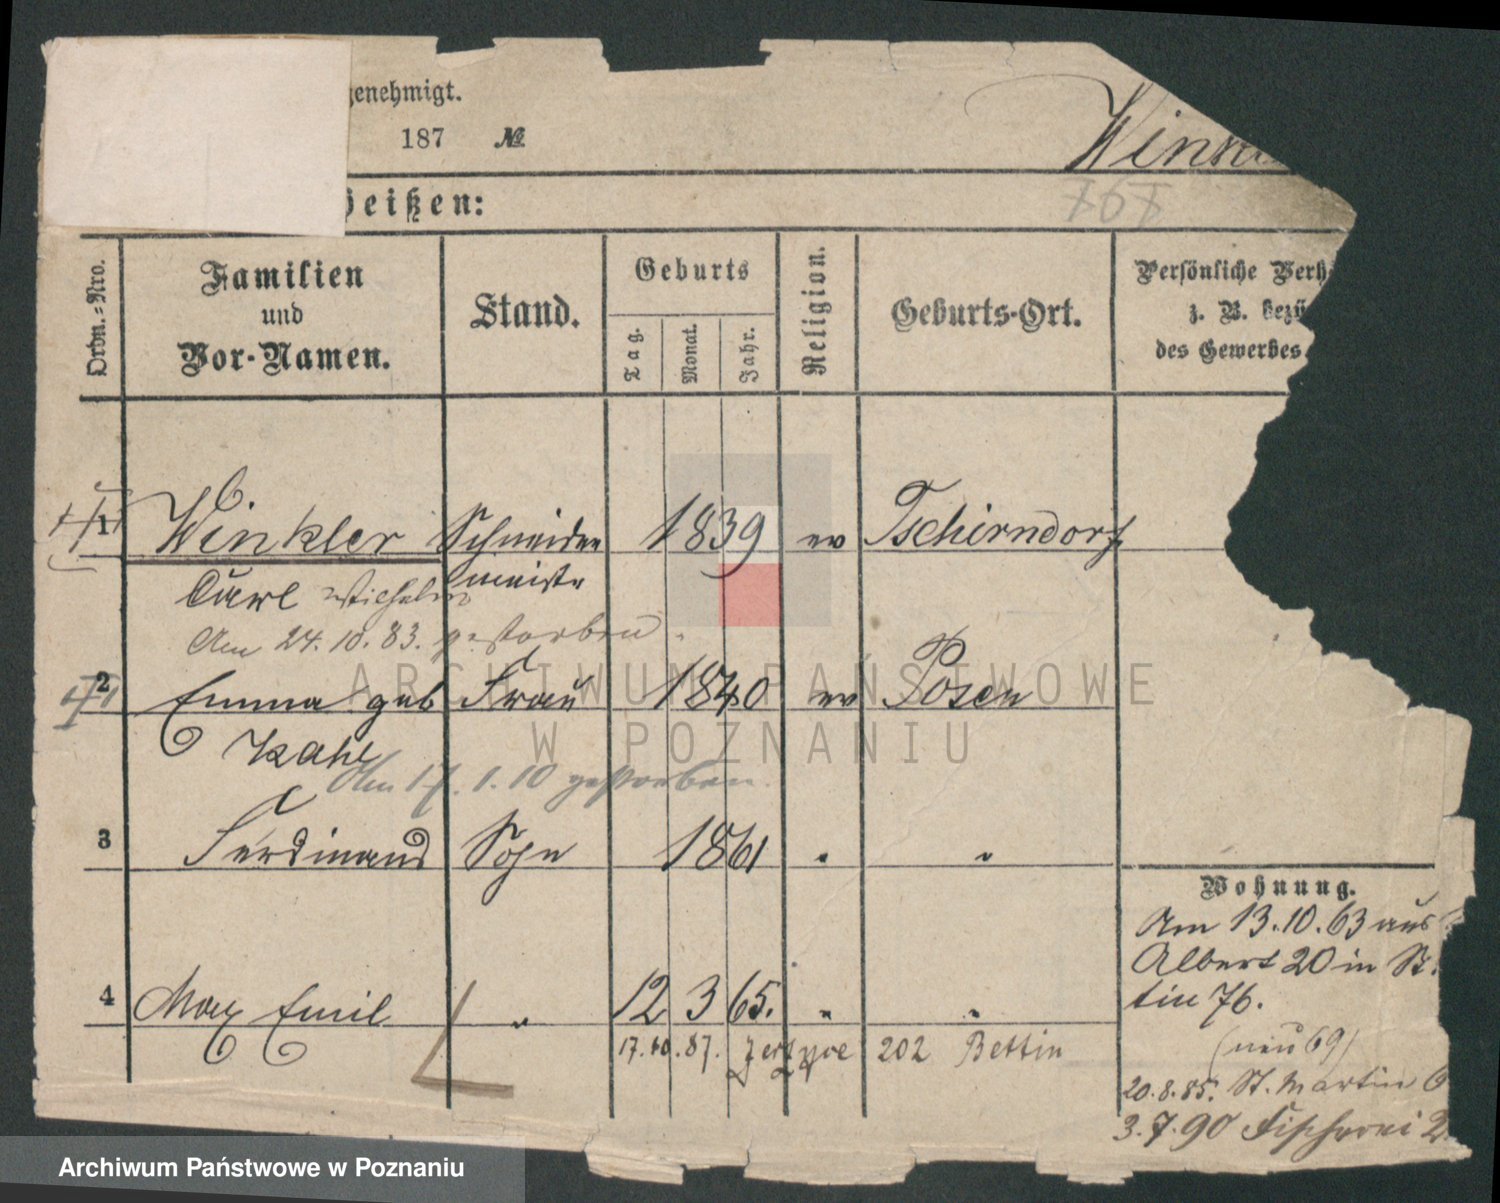 genehmigt.
187 №
Wink
767
heißen:
Ordn.-Nro.
Familien
und
Vor-Namen.
Stand.
Geburts
Tag.
Monat.
Jahr.
Religion.
Geburts-Ort.
Persönliche Verh
z. B. bezü
des Gewerbes
1 Winkler Schneider 1839 ev Tschirndorf
Carl Wilhelm meister
Am 24.10.83. gestorben.
2 Emma geb Frau 1840 ev Posen
Kahl
Am 17.1.10 gestorben.
3 Ferdinand Sohn 1861 " "
Wohnung.
Am 13.10.63 aus
Albert 20 in St.
4 Max Emil " 12 3 65. " "
tin 76.
17.10.87. Jerzyce 202 Bettin
(neu 69)
20.8.85. St. Martin 6
3.7.90 Fischerei 2
ARCHIWUM PAŃSTWOWE
W POZNANIU
Archiwum Państwowe w Poznaniu